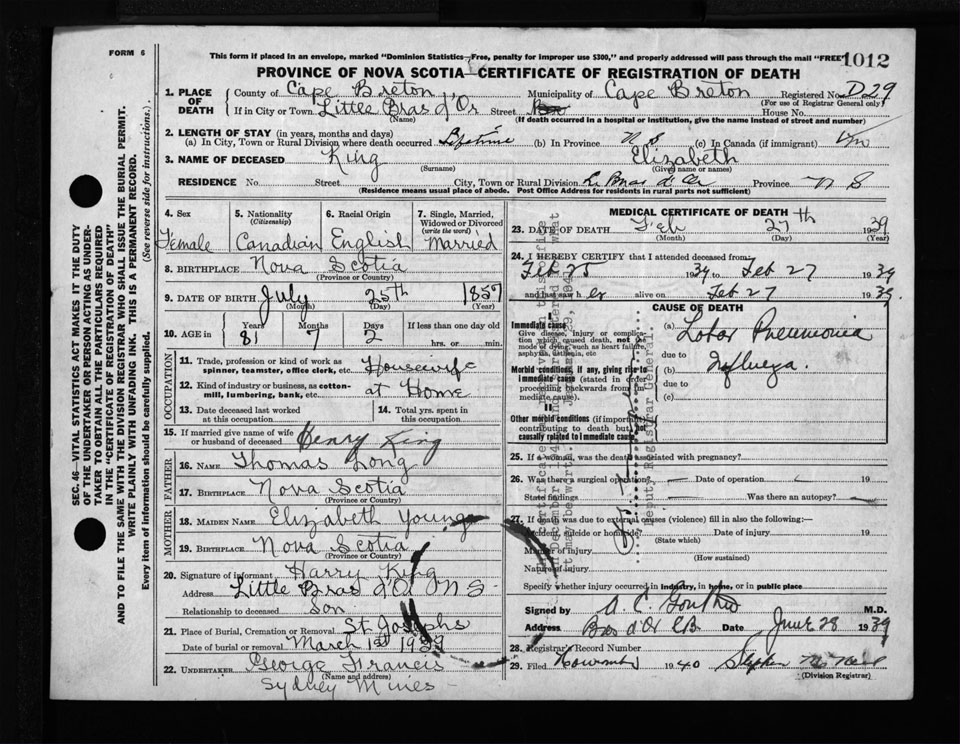 FORM 6
This form if placed in an envelope, marked "Dominion Statistics—Free, penalty for improper use $300," and properly addressed will pass through the mail "FREE"
1012
PROVINCE OF NOVA SCOTIA CERTIFICATE OF REGISTRATION OF DEATH
1. PLACE OF DEATH County of Cape Breton Municipality of Cape Breton Registered No. D29
(For use of Registrar General only)
If in City or Town Little Bras d'Or Street House No.
(Name) (If death occurred in a hospital or institution, give the name instead of street and number)
2. LENGTH OF STAY (in years, months and days)
(a) In City, Town or Rural Division where death occurred Lifetime (b) In Province N S (c) In Canada (if immigrant)
3. NAME OF DECEASED King Elizabeth
(Surname) (Given name or names)
RESIDENCE No. Street City, Town or Rural Division L. Bras d'Or Province N S
(Residence means usual place of abode. Post Office Address for residents in rural parts not sufficient)
4. Sex Female
5. Nationality (Citizenship) Canadian
6. Racial Origin English
7. Single, Married, Widowed or Divorced (write the word) Married
8. BIRTHPLACE Nova Scotia
(Province or Country)
9. DATE OF BIRTH July 25th 1857
(Month) (Day) (Year)
10. AGE in Years 81 Months 7 Days 2 If less than one day old
hrs. or min.
OCCUPATION
11. Trade, profession or kind of work as spinner, teamster, office clerk, etc. Housewife
12. Kind of industry or business, as cotton-mill, lumbering, bank, etc. at Home
13. Date deceased last worked at this occupation 14. Total yrs. spent in this occupation
15. If married give name of wife or husband of deceased Henry King
FATHER
16. NAME Thomas Long
17. BIRTHPLACE Nova Scotia
(Province or Country)
MOTHER
18. MAIDEN NAME Elizabeth Young
19. BIRTHPLACE Nova Scotia
(Province or Country)
20. Signature of informant Harry King
Address Little Bras d'Or N S
Relationship to deceased Son
21. Place of Burial, Cremation or Removal St Josephs
Date of burial or removal March 1st 1939
22. UNDERTAKER George Francis
(Name and address)
Sydney Mines
MEDICAL CERTIFICATE OF DEATH
23. DATE OF DEATH Feb 27th 1939
(Month) (Day) (Year)
24. I HEREBY CERTIFY that I attended deceased from
Feb 25 1939 to Feb 27 1939
and last saw her alive on Feb 27 1939
CAUSE OF DEATH
Immediate cause
Give disease, injury or complication which caused death, not the mode of dying, such as heart failure, asphyxia, asthenia, etc
(a) Lobar Pneumonia
due to
Morbid conditions, if any, giving rise to immediate cause (stated in order proceeding backwards from immediate cause)
(b) Influenza.
due to
(c)
Other morbid conditions (if important) contributing to death but not causally related to immediate cause
25. If a woman, was the death associated with pregnancy?
26. Was there a surgical operation? — Date of operation 19
State findings Was there an autopsy? —
27. If death was due to external causes (violence) fill in also the following:—
Accident, suicide or homicide? Date of injury 19
(State which)
Manner of injury
(How sustained)
Nature of injury
Specify whether injury occurred in industry, in home, or in public place
Signed by A. C. M.D.
Address Bras d'Or CB Date June 28 1939
28. Registrar's Record Number
29. Filed November 1940 Stephen
(Division Registrar)
Deputy Registrar General.
SEC. 46—VITAL STATISTICS ACT MAKES IT THE DUTY OF THE UNDERTAKER OR PERSON ACTING AS UNDERTAKER TO OBTAIN ALL THE PARTICULARS REQUIRED IN THE "CERTIFICATE OF REGISTRATION OF DEATH" AND TO FILE THE SAME WITH THE DIVISION REGISTRAR WHO SHALL ISSUE THE BURIAL PERMIT.
WRITE PLAINLY WITH UNFADING INK. THIS IS A PERMANENT RECORD.
Every item of information should be carefully supplied. (See reverse side for instructions.)